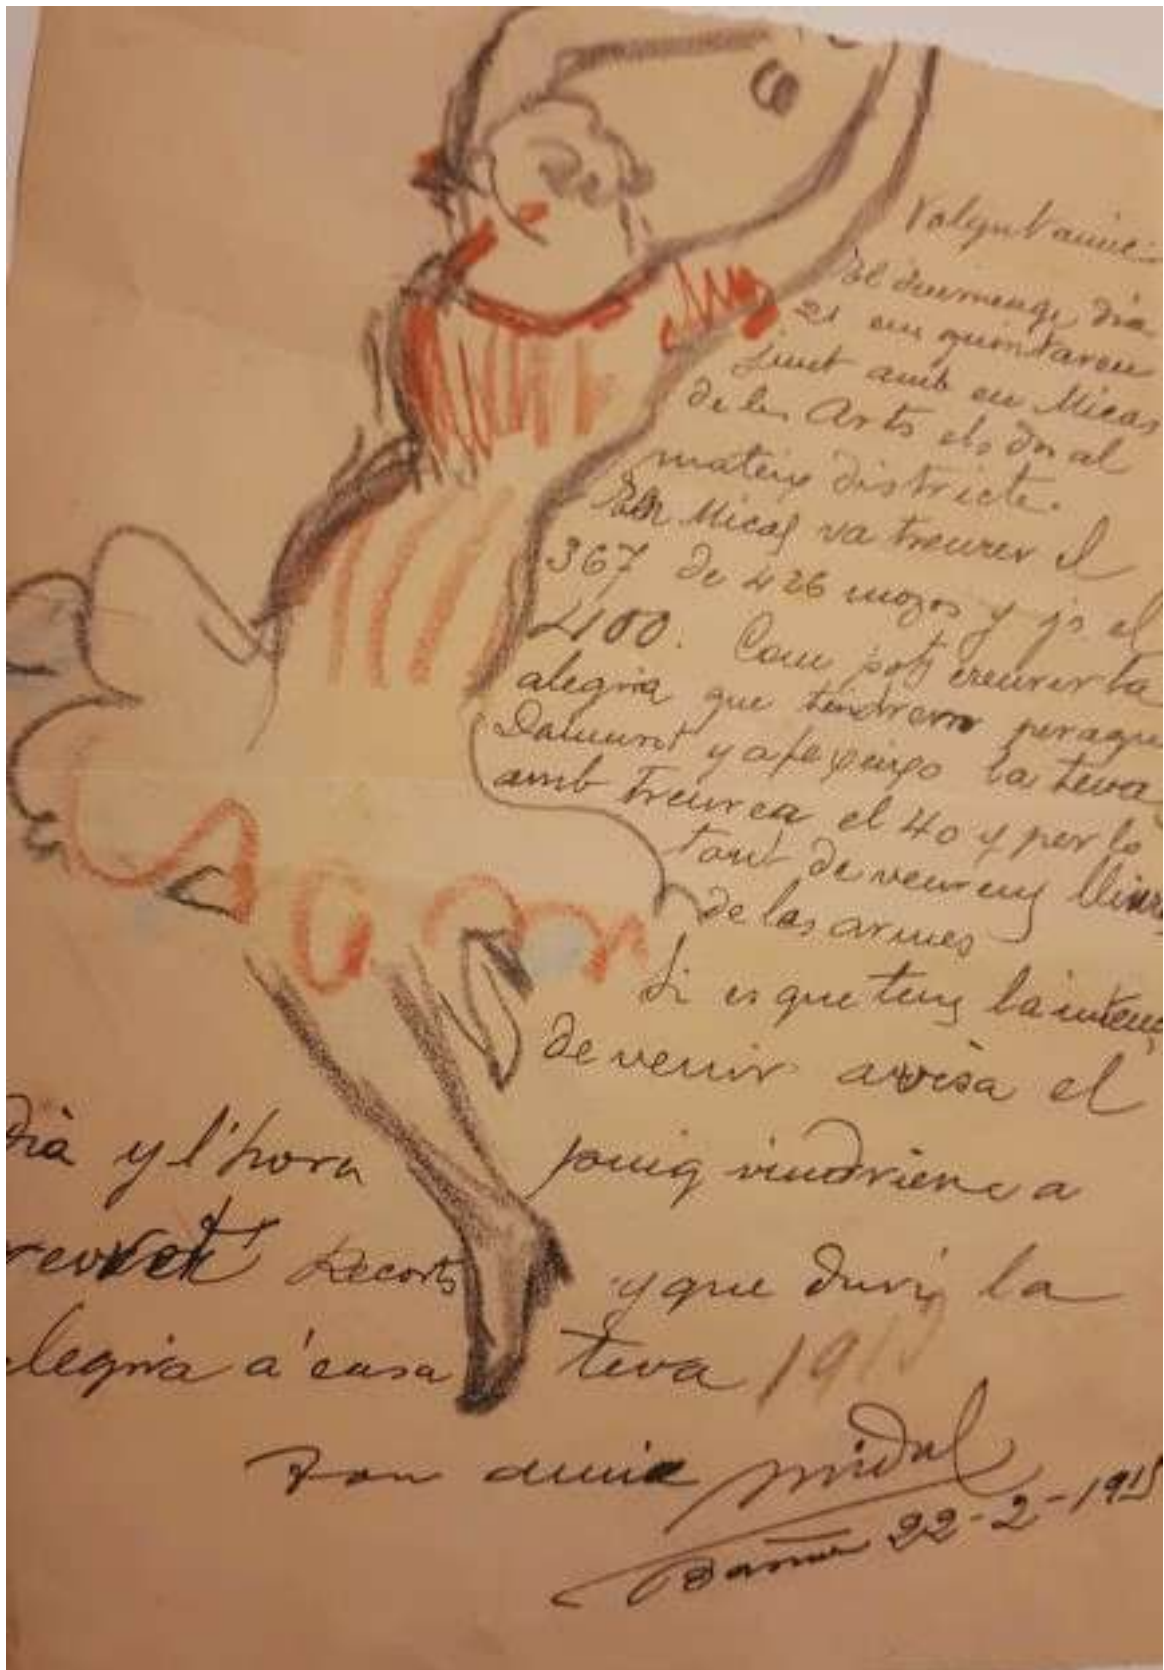 Volgut amic:
El diumenge dia
21 em quintaren
junt amb en Micas
de les Arts els dos al
mateix districte.
En Micas va treurer el
367 de 426 mozos y jo el
400. Com pots creurer la
alegria que tindrem
Damunt y la teva
amb treurea el 40 y per lo
tant de veureus lliure
de las armes
Si es que tens la intenc
de venir avisa el
dia y l'hora puig vindriem a
revret Recorts y que duri la
legria á casa teva 1915
Ton amic Vidal
22-2-1915